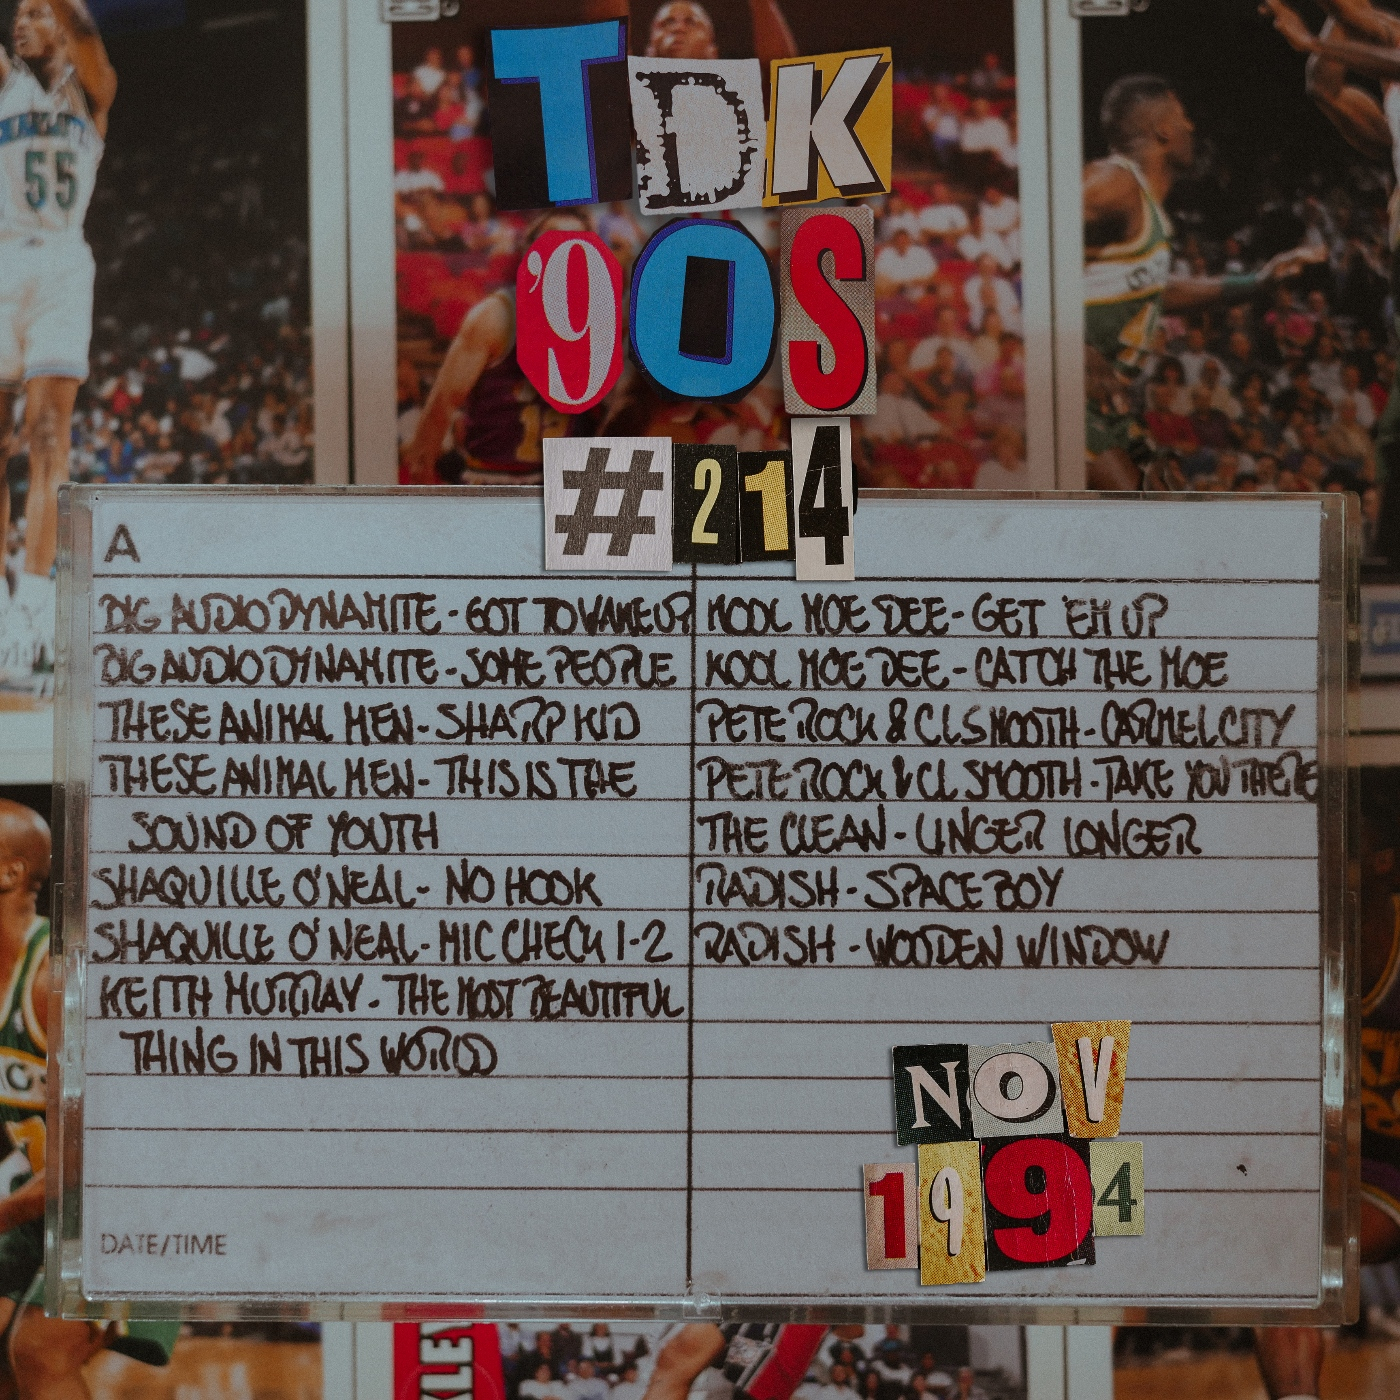 CHARLOTTE
55
TDK
'90S
#214
A
BIG AUDIO DYNAMITE - GOT TO WAKE UP
BIG AUDIO DYNAMITE - SOME PEOPLE
THESE ANIMAL MEN - SHARP KID
THESE ANIMAL MEN - THIS IS THE
SOUND OF YOUTH
SHAQUILLE O'NEAL - NO HOOK
SHAQUILLE O'NEAL - MIC CHECK 1-2
KEITH MURRAY - THE MOST BEAUTIFUL
THING IN THIS WORLD
KOOL MOE DEE - GET 'EM UP
KOOL MOE DEE - CATCH THE MOE
PETE ROCK & CL SMOOTH - CARMEL CITY
PETE ROCK & CL SMOOTH - TAKE YOU THERE
THE CLEAN - LINGER LONGER
RADISH - SPACE BOY
RADISH - WOODEN WINDOW
NOV
1994
DATE/TIME